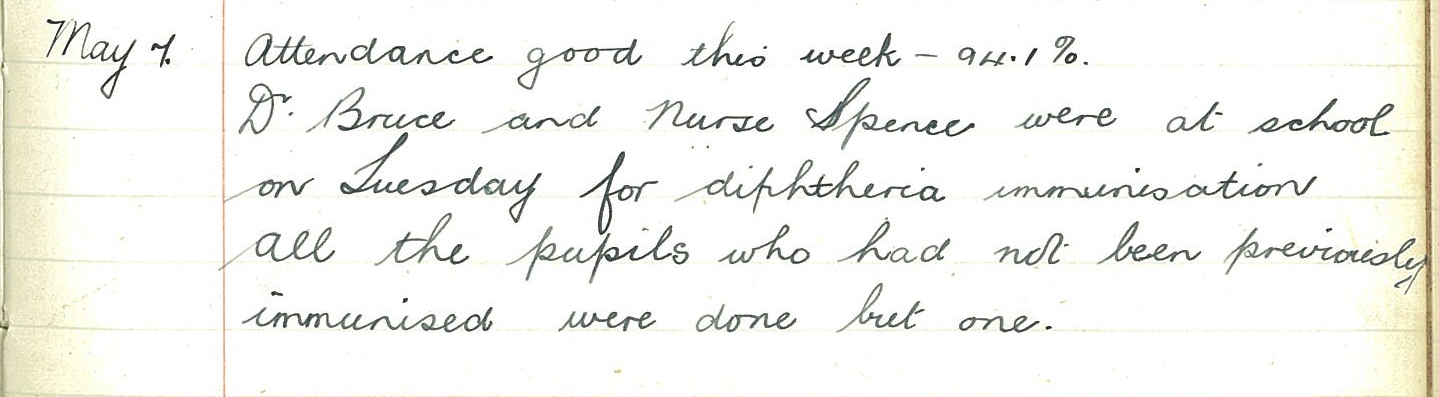 May 7. Attendance good this week – 94.1%.
Dr. Bruce and Nurse Spence were at school
on Tuesday for diphtheria immunisation
all the pupils who had not been previously
immunised were done but one.